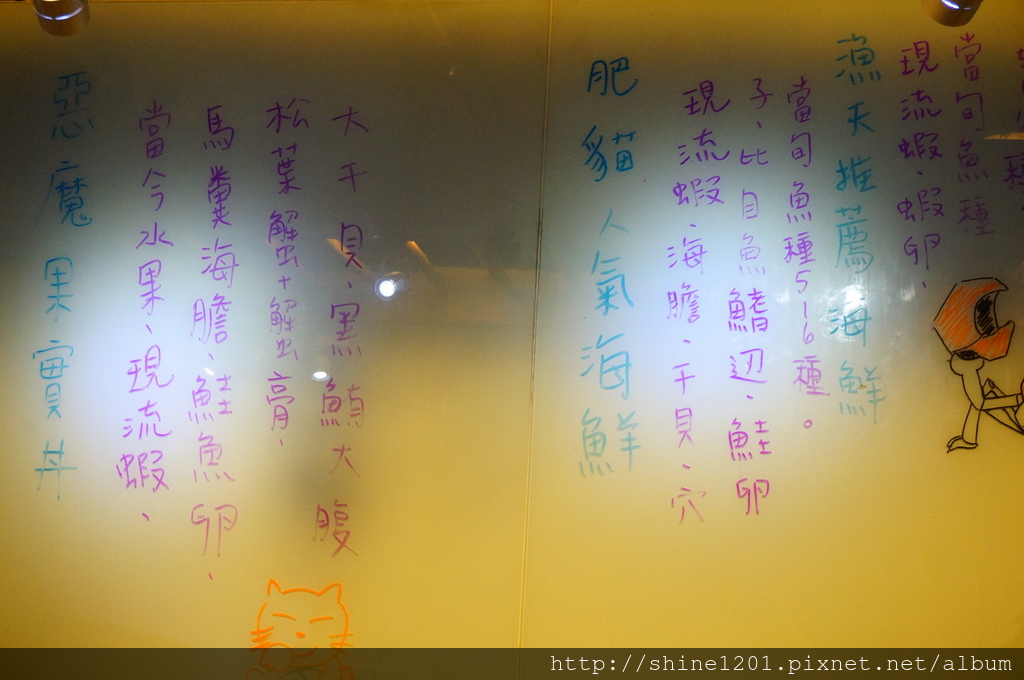 惡魔果實丼
當今水果、現流蝦、
馬糞海膽、鮭魚卵、
松葉蟹+蟹膏、
大干貝、黑鮪大腹
肥貓人氣海鮮
現流蝦、海膽、干貝、穴
子、比目魚鰭辺、鮭卵
當旬魚種5-6種。
漁夫推薦海鮮
現流蝦、蝦卵、
當旬魚種
http://shine1201.pixnet.net/album